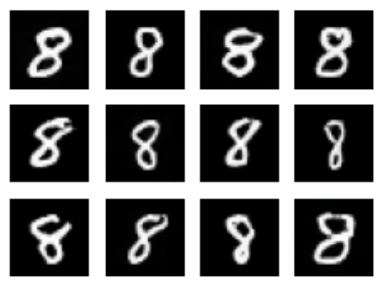 8 8 8 8
8 8 8 8
8 8 8 8